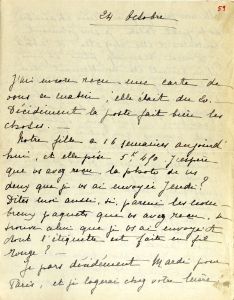 59
24 Octobre
J'ai encore reçu une carte de
vous ce matin, elle était du 20.
Décidément la poste fait bien les
choses. —
Notre fille a 16 semaines aujourd'
hui, et elle pèse 5k 490. J'espère
que vs avez reçu la photo de ns
deux que je vs ai envoyée Jeudi?
Dites moi aussi, si, parmi les nom
breux paquets que vs avez reçu, se
trouve celui que je vs ai envoyé et
dont l'étiquette est faite en fil
rouge? —
Je pars décidément Mardi pour
Paris, et je logerai chez votre